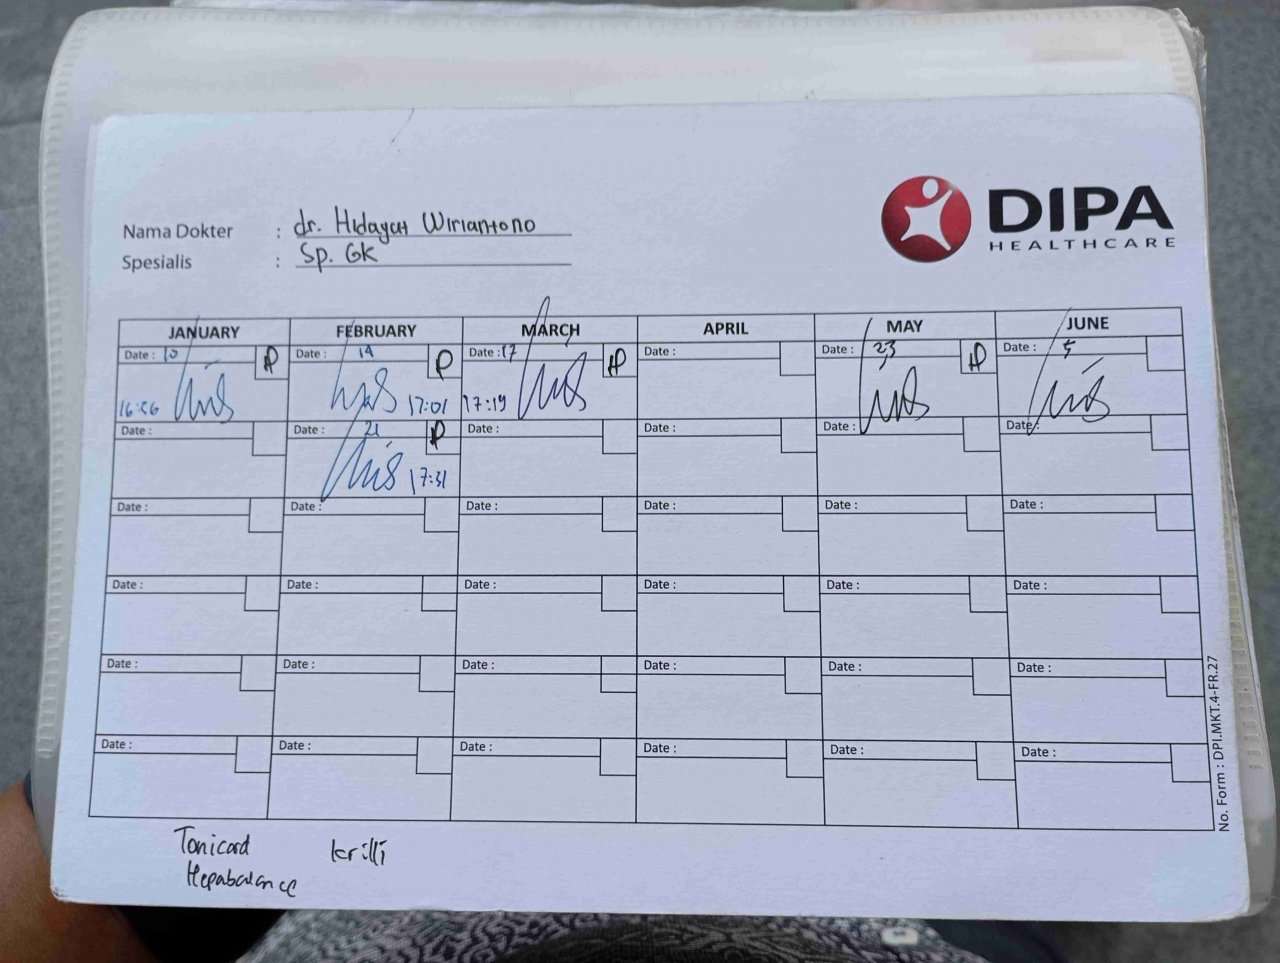 DIPA
HEALTHCARE
Nama Dokter : dr. Hidayat Wiriantono
Spesialis : Sp. GK
JANUARY FEBRUARY MARCH APRIL MAY JUNE
Date : 10 Date : 14 Date : 17 Date : Date : 23 Date : 5
16:56 17:01 17:19
Date : Date : 21 Date : Date : Date : Date :
17:31
Date : Date : Date : Date : Date : Date :
Date : Date : Date : Date : Date : Date :
Date : Date : Date : Date : Date : Date :
Date : Date : Date : Date : Date : Date :
No. Form : DPI.MKT.4-FR.27
Tonicard krilli
Hepabalance